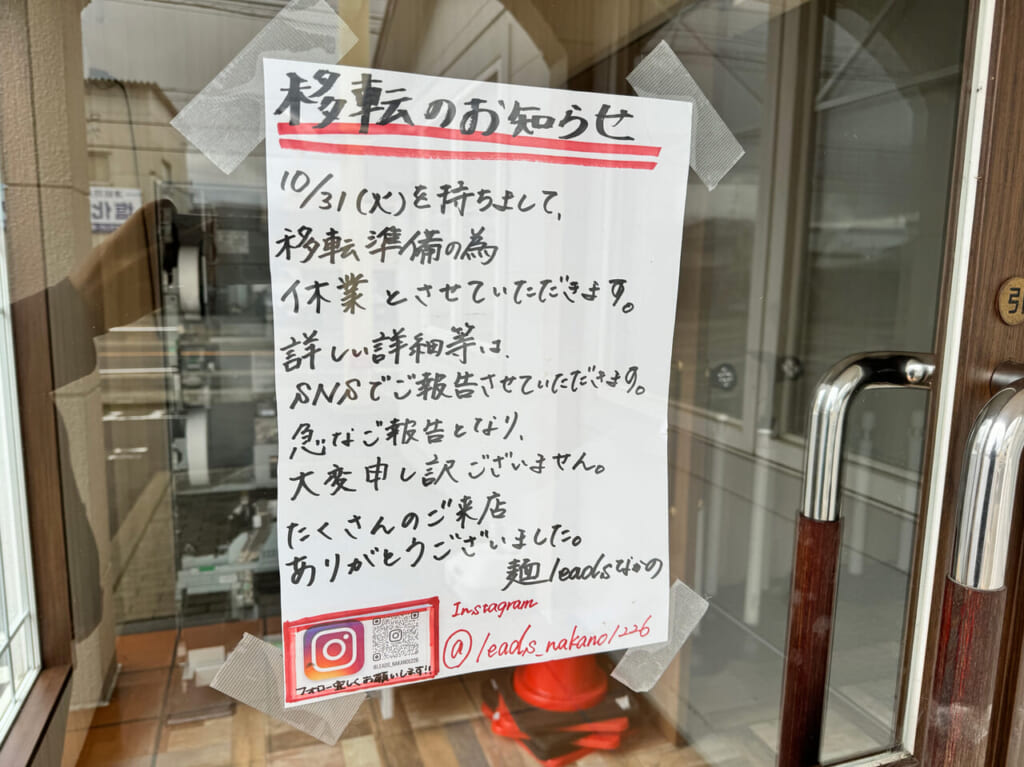 移転のお知らせ
10/31(火)を持ちまして、
移転準備の為
休業とさせていただきます。
詳しい詳細等は、
SNSでご報告させていただきます。
急なご報告となり、
大変申し訳ございません。
たくさんのご来店
ありがとうございました。
麺leadsなかの
Instagram
@leads_nakano1226
@LEADS_NAKANO1226
フォロー宜しくお願いします!!
引